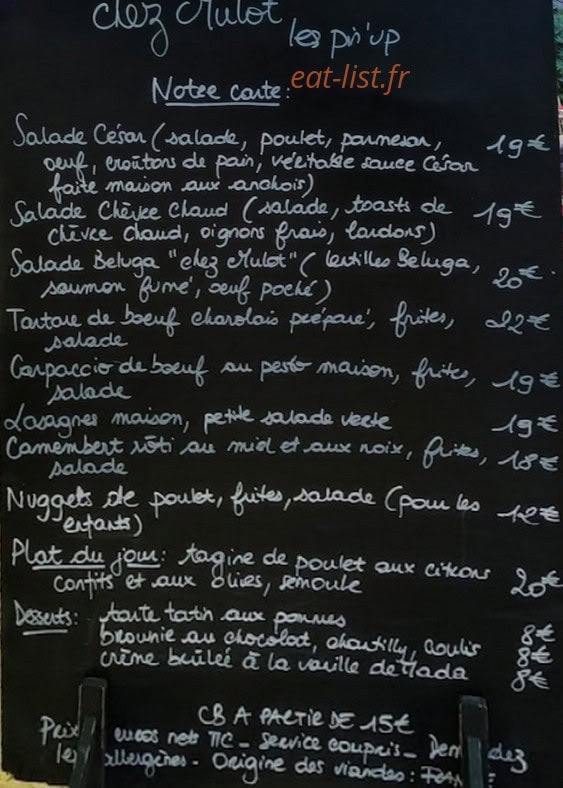 chez Mulot
les pin'up
eat-list.fr
Notre carte:
Salade César (salade, poulet, parmesan, 19€
oeuf, croûtons de pain, véritable sauce César
faite maison aux anchois)
Salade Chèvre Chaud (salade, toasts de 19€
chèvre chaud, oignons frais, lardons)
Salade Beluga "chez Mulot" (lentilles Beluga, 20€
saumon fumé, oeuf poché)
Tartare de boeuf charolais préparé, frites, 22€
salade
Carpaccio de boeuf au pesto maison, frites, 19€
salade
Lasagnes maison, petite salade verte 19€
Camembert rôti au miel et aux noix, frites, 18€
salade
Nuggets de poulet, frites, salade (pour les 12€
enfants)
Plat du jour: tagine de poulet aux citrons 20€
confits et aux olives, semoule
Desserts: tarte tatin aux pommes 8€
brownie au chocolat, chantilly, coulis 8€
crème brûlée à la vanille de Mada 8€
CB A PARTIR DE 15€
Prix euros nets TTC - Service compris - Demandez
les allergènes - Origine des viandes: FRANCE